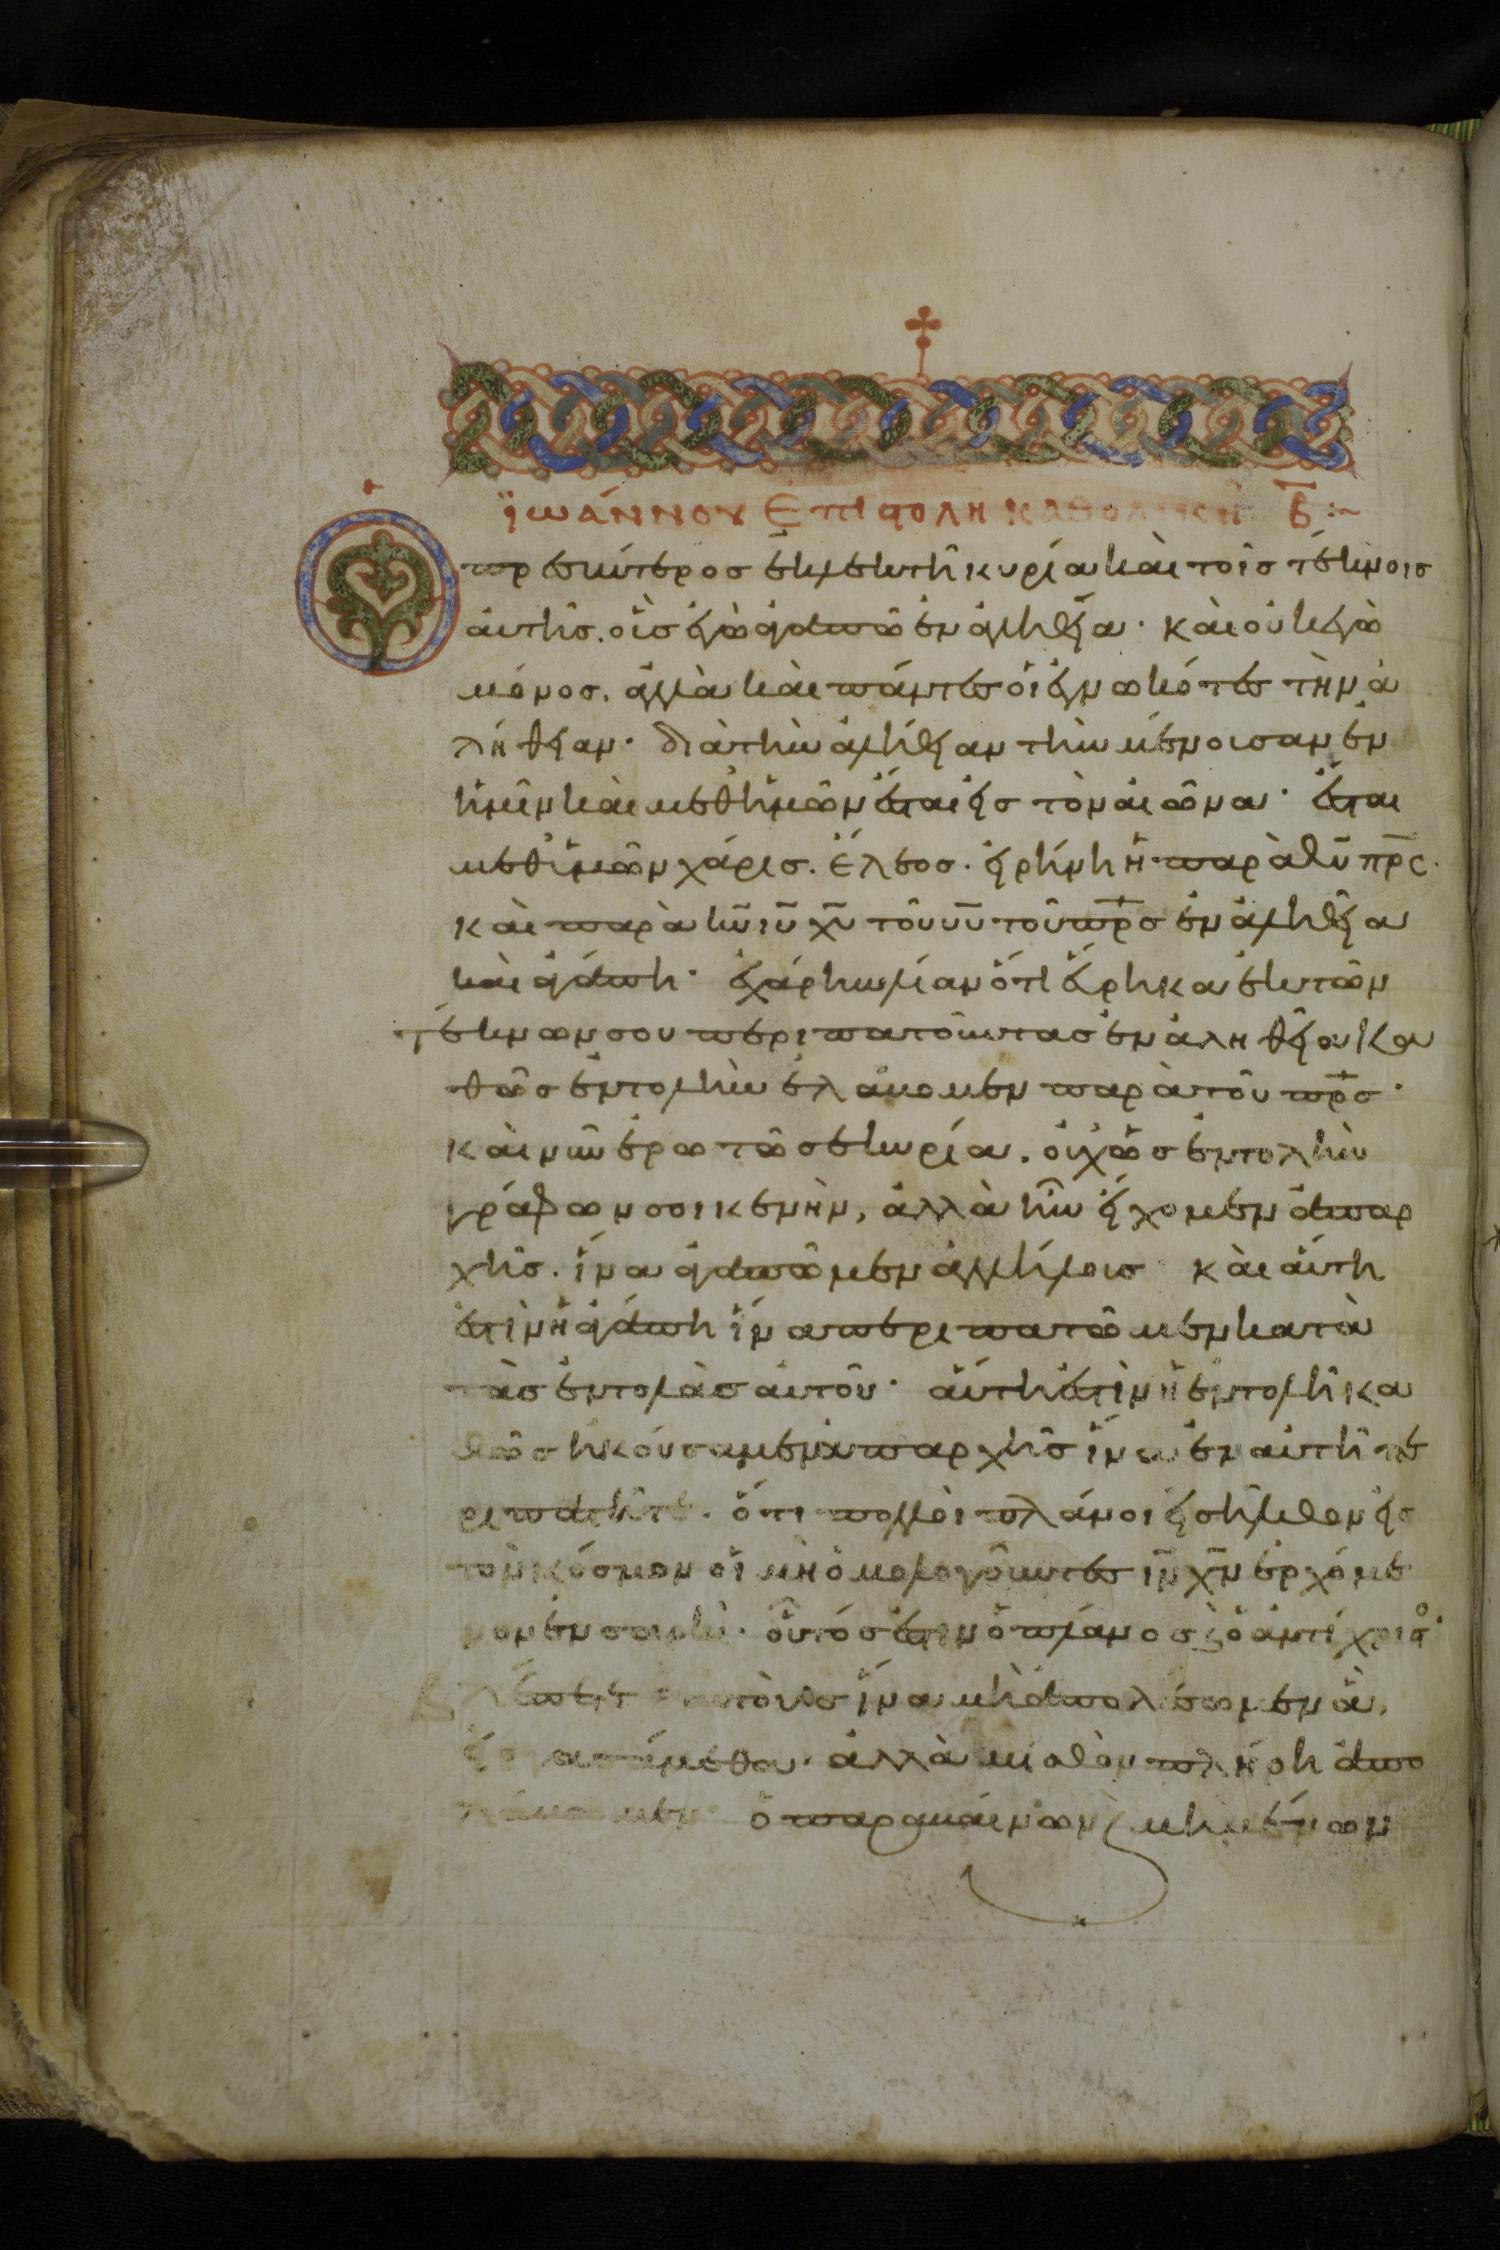 ϊωάννου Επιστολη καθολικη Β :~
Ο πρεσβύτερος ἐκλεκτῆ κυρία καὶ τοῖς τέκνοις
ἀυτῆς. οὓς ἐγὼ ἀγαπῶ ἐν ἀληθεία · καὶ οὐκ ἐγὼ
μόνος. ἀλλὰ καὶ πάντες οἱ ἐγνωκότες τὴν ἀ
λήθειαν · διὰ τὴν ἀλήθειαν τὴν μένουσαν ἐν
ἡμῖν καὶ μεθ' ἡμῶν ἔσται εἰς τὸν αἰῶνα · ἔσται
μεθ' ἡμῶν χάρις. ἔλεος. εἰρήνη · παρὰ θῦ πρς ·
καὶ παρὰ κῦ ιῦ χῦ τοῦ υῦ τοῦ πρς ἐν ἀληθεία
καὶ ἀγάπη · ἐχάρην λίαν ὅτι εὕρηκα ἐκ τῶν
τέκνων σου περιπατοῦντας ἐν ἀληθεία κα
θὼς ἐντολὴν ἐλάβομεν παρὰ τοῦ πρς ·
καὶ νῦν ἐρωτῶ σε κυρία. οὐχ ὡς ἐντολὴν
γράφων σοι κενὴν, ἀλλὰ ἣν εἴχομεν ἀπαρ
χῆς. ἵνα ἀγαπῶμεν ἀλλήλοις καὶ ἁύτη
ἐστὶν ἡ ἀγάπη ἵνα περιπατῶμεν κατὰ
τὰς ἐντολὰς ἀυτοῦ · ἁύτη ἐστὶν ἡ ἐντολὴ κα
θὼς ἠκούσαμεν ἀπαρχῆς ἵνα ἐν ἀυτῆ πε
ριπατῆτε. ὅτι πολλοὶ πλάνοι εἰσῆλθον εἰς
τὸν κόσμον οἱ μὴ ὁμολογοῦντες ιν χν ἐρχόμε
νον ἐν σαρκὶ · οὗτός ἐστιν ὁ πλάνος ϗ ὁ ἀντίχριστο ·
βλέπετε ἑαυτοὺς ἵνα μὴ ἀπολέσωμεν ἃ,
εἰργασάμεθα · ἀλλὰ μισθὸν πλήρη ἀπο
λάβωμεν ὁ παραβαίνων ϗ μὴ μένων